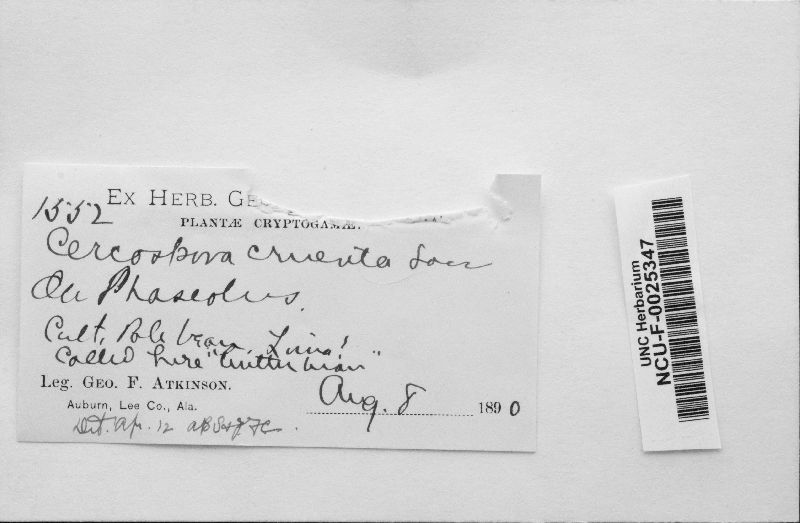 Ex Herb. Ge
1552
PLANTÆ CRYPTOGAMÆ.
Cercospora cruenta Sacc
On Phaseolus.
Cult. Pole bean, Lima!
Called here "butter bean"
Leg. Geo. F. Atkinson.
Auburn, Lee Co., Ala.
Aug. 8 1890
Det. Ap. 12
UNC Herbarium
NCU-F-0025347